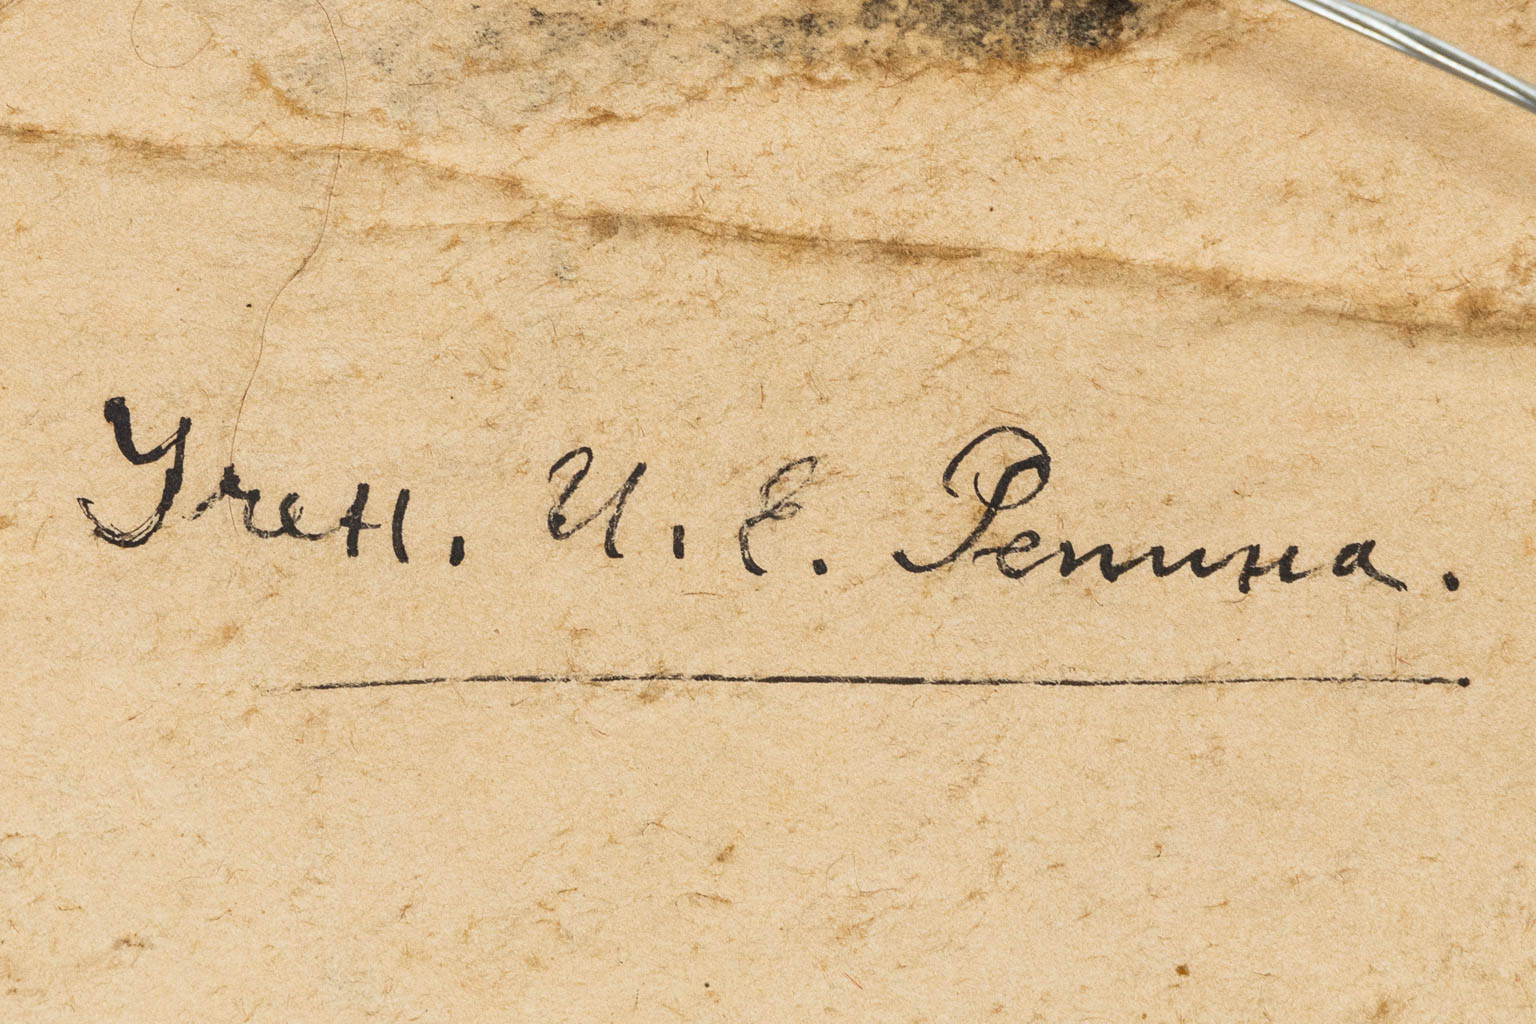 Учен. И. Е. Репина.